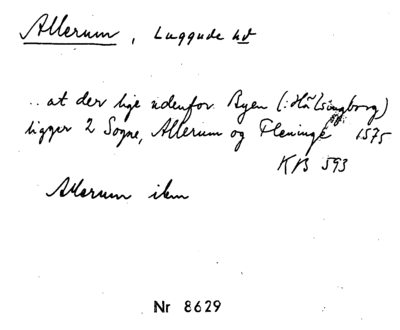 Allerum, Luggude hd
.. at der lige udenfor Byen (: Hälsingborg)
ligger 2 Sogne, Allerum og Fleninge 1575
KB 593
Allerum ibm
Nr 8629